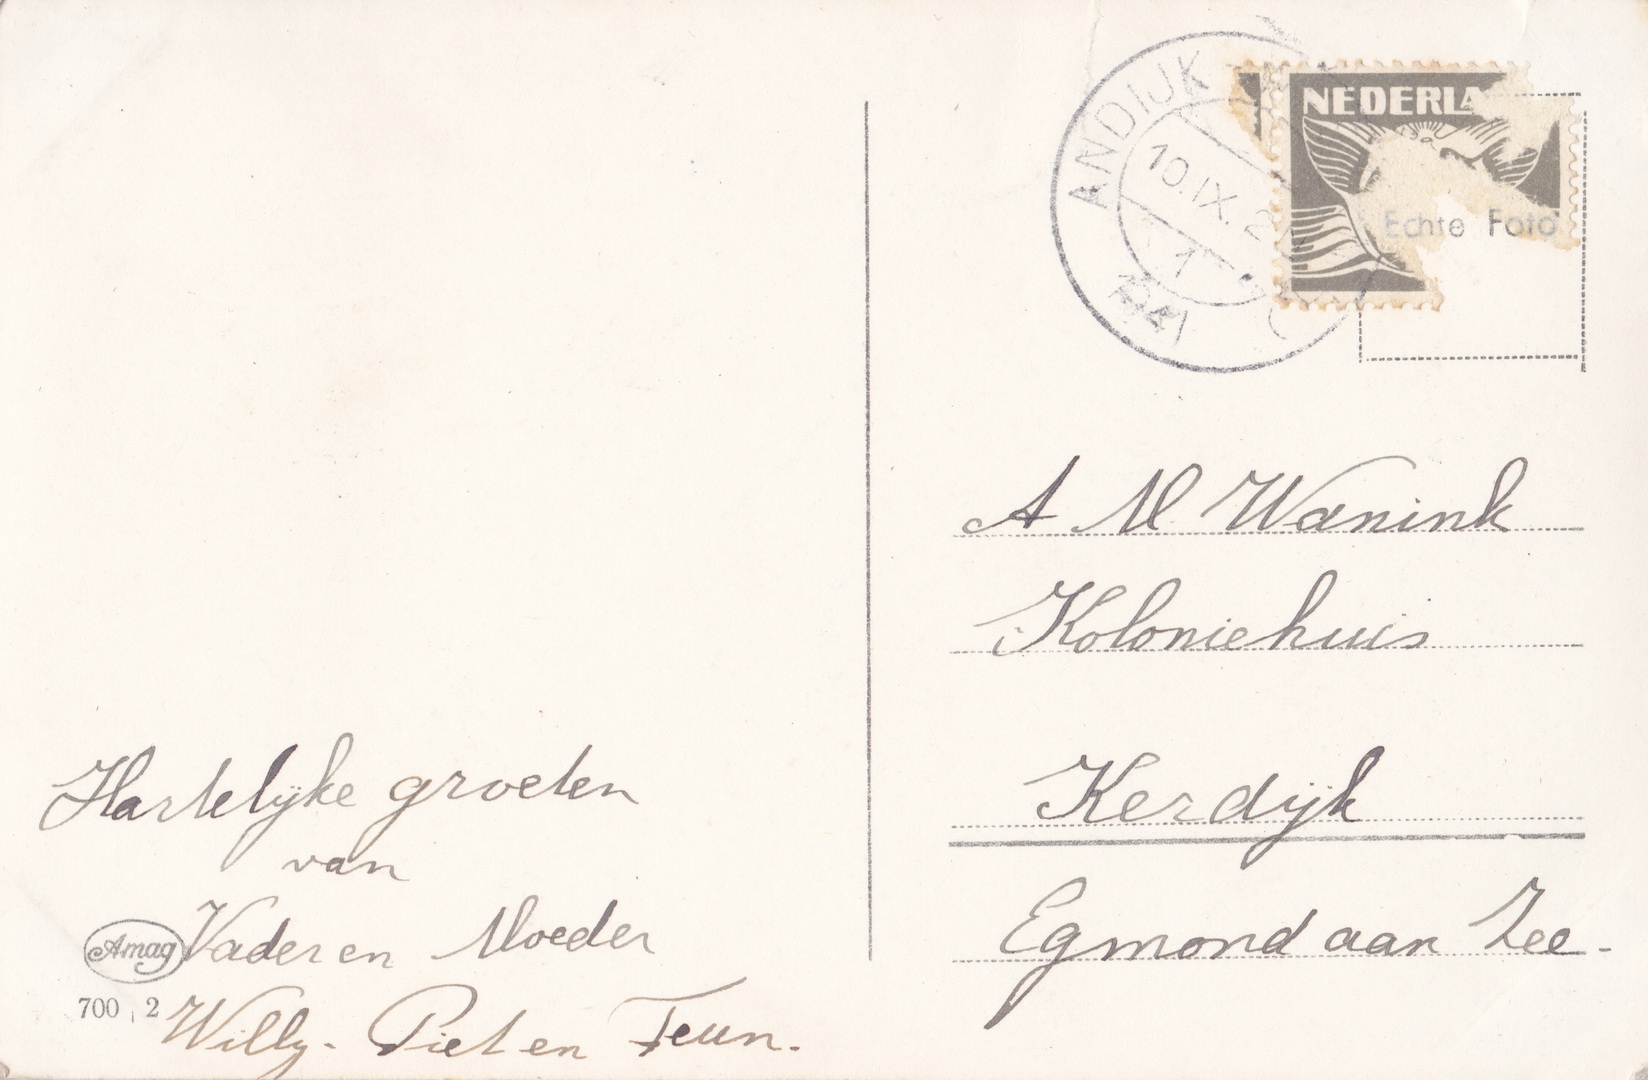 Hartelijke groeten
van
Vader en Moeder
Willy - Piet en Teun.
Amag
700 2
ANDIJK
10.IX.2
1
1941
NEDERLA
Echte Foto
A M Wanink
Koloniehuis
Kerdijk
Egmond aan Zee-